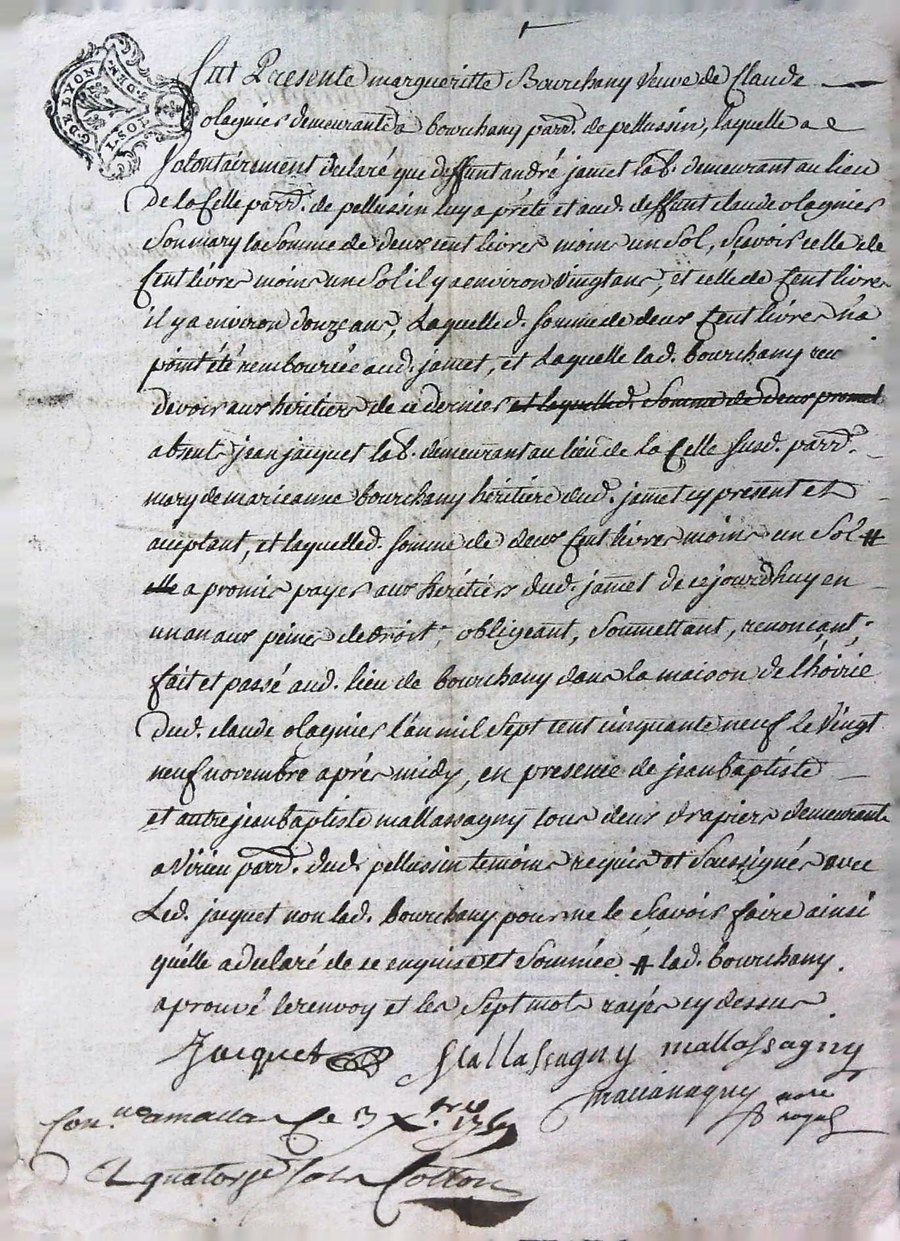 G.DE LYON
I.SOL
8.DEM
fut Presente margueritte Bourchany veuve de Claude
olagnier demeurante a bourchany parr.e de pellussin, laquelle a
volontairement declaré que deffunt andré jamet lab.r demeurant au lieu
de la Celle parr.e de pellussin luy a prété et aud. deffunt claude olagnier
Son mary la Somme de deux cent livres moins un Sol, Scavoir celle de
Cent livres moins un Sol il y a environ vingt ans, et celle de Cent livres
il y a environ douze ans, Laquelled. Somme de deux Cent livres n'a
point été rembourcée aud. jamet, et Laquelle lad. bourchany
devoir aux héritiers de ce dernier et laquelled. Somme de deux promet
absents jean jacquet lab.r demeurant au lieu de La Celle Susd. parr.e
mary de marieanne bourchany héritiere dud. jamet cy present et
acceptant, et laquelled. Somme de deux Cent livres moins un Sol #
elle a promis payer aux héritiers dud. jamet de cejourdhuy en
un an aux peines de droit, obligeant, Soumettant, renonçant;
fait et passé aud. lieu de bourchany dans la maison de l'hoirie
Dud. claude olagnier l'an mil Sept cent cinquante neuf Le vingt
neuf novembre aprés midy, en presence de jean baptiste
et autre jean baptiste mallassagny tous deux drapiers demeurants
a virieu parr.e dud. pellussin temoins requis et Soussignés avec
Led. jacquet non lad. bourchany pour ne le Scavoir faire ainsi
qu'elle a declaré de ce enquise et Sommée # lad. bourchany
aprouvé le renvoy et les Sept mots rayés cy dessus
Jacquet Mallassagny mallassagny
nore
royal
Con.lle a mallev Le 3 X.bre 1759
R quatorze sols Cotton